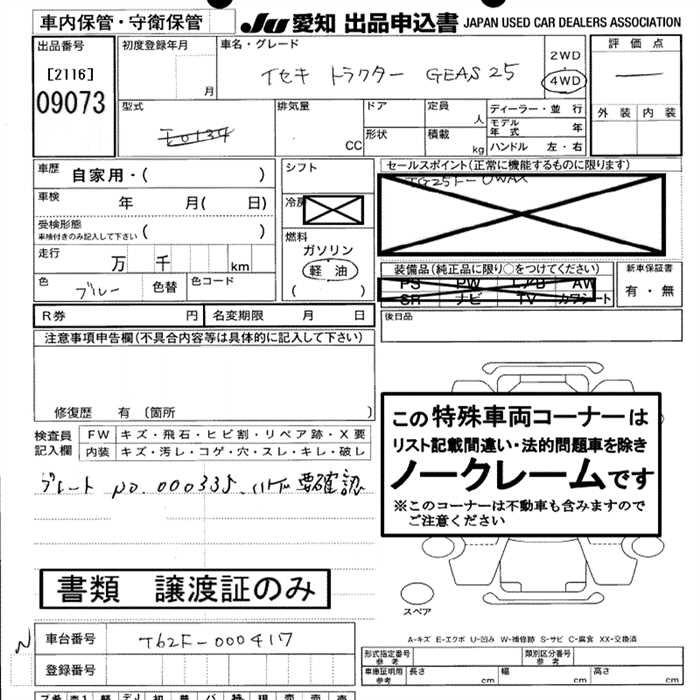 車内保管・守衛保管
JU 愛知 出品申込書 JAPAN USED CAR DEALERS ASSOCIATION
出品番号
[2116]
09073
初度登録年月
月
車名・グレード
イセキ トラクター GEAS 25
2WD
4WD
評価点
外装 内装
型式
排気量
CC
ドア
形状
定員
人
積載
kg
ディーラー・並 行
モデル年式 年
ハンドル 左・右
車歴
自家用・( )
車検
年 月( 日)
受検形態
車検付きのみ記入して下さい ( )
走行
万 千 km
色
ブルー
色替
色コード
シフト
燃料
ガソリン
軽油
( )
セールスポイント(正常に機能するものに限ります)
装備品(純正品に限り○をつけてください)
PS PW エアB AW
SR ナビ TV カワシート
新車保証書
有・無
R券 円 名変期限 月 日
後日品
注意事項申告欄(不具合内容等は具体的に記入して下さい)
修復歴 有 〔箇所 〕
検査員記入欄
FW キズ・飛石・ヒビ割・リペア跡・X要
内装 キズ・汚レ・コゲ・穴・スレ・キレ・破レ
プレート No.000335. ハゲ 要確認
この特殊車両コーナーは
リスト記載間違い・法的問題車を除き
ノークレームです
※このコーナーは不動車も含みますので
ご注意ください
書類 譲渡証のみ
スペア
A-キズ E-エクボ U-凹み W-補修跡 S-サビ C-腐食 XX-交換済
車台番号 T62F-000417
登録番号
形式指定番号 参考
類別区分番号 参考
車庫証明用 参考
長さ cm 幅 cm 高さ cm